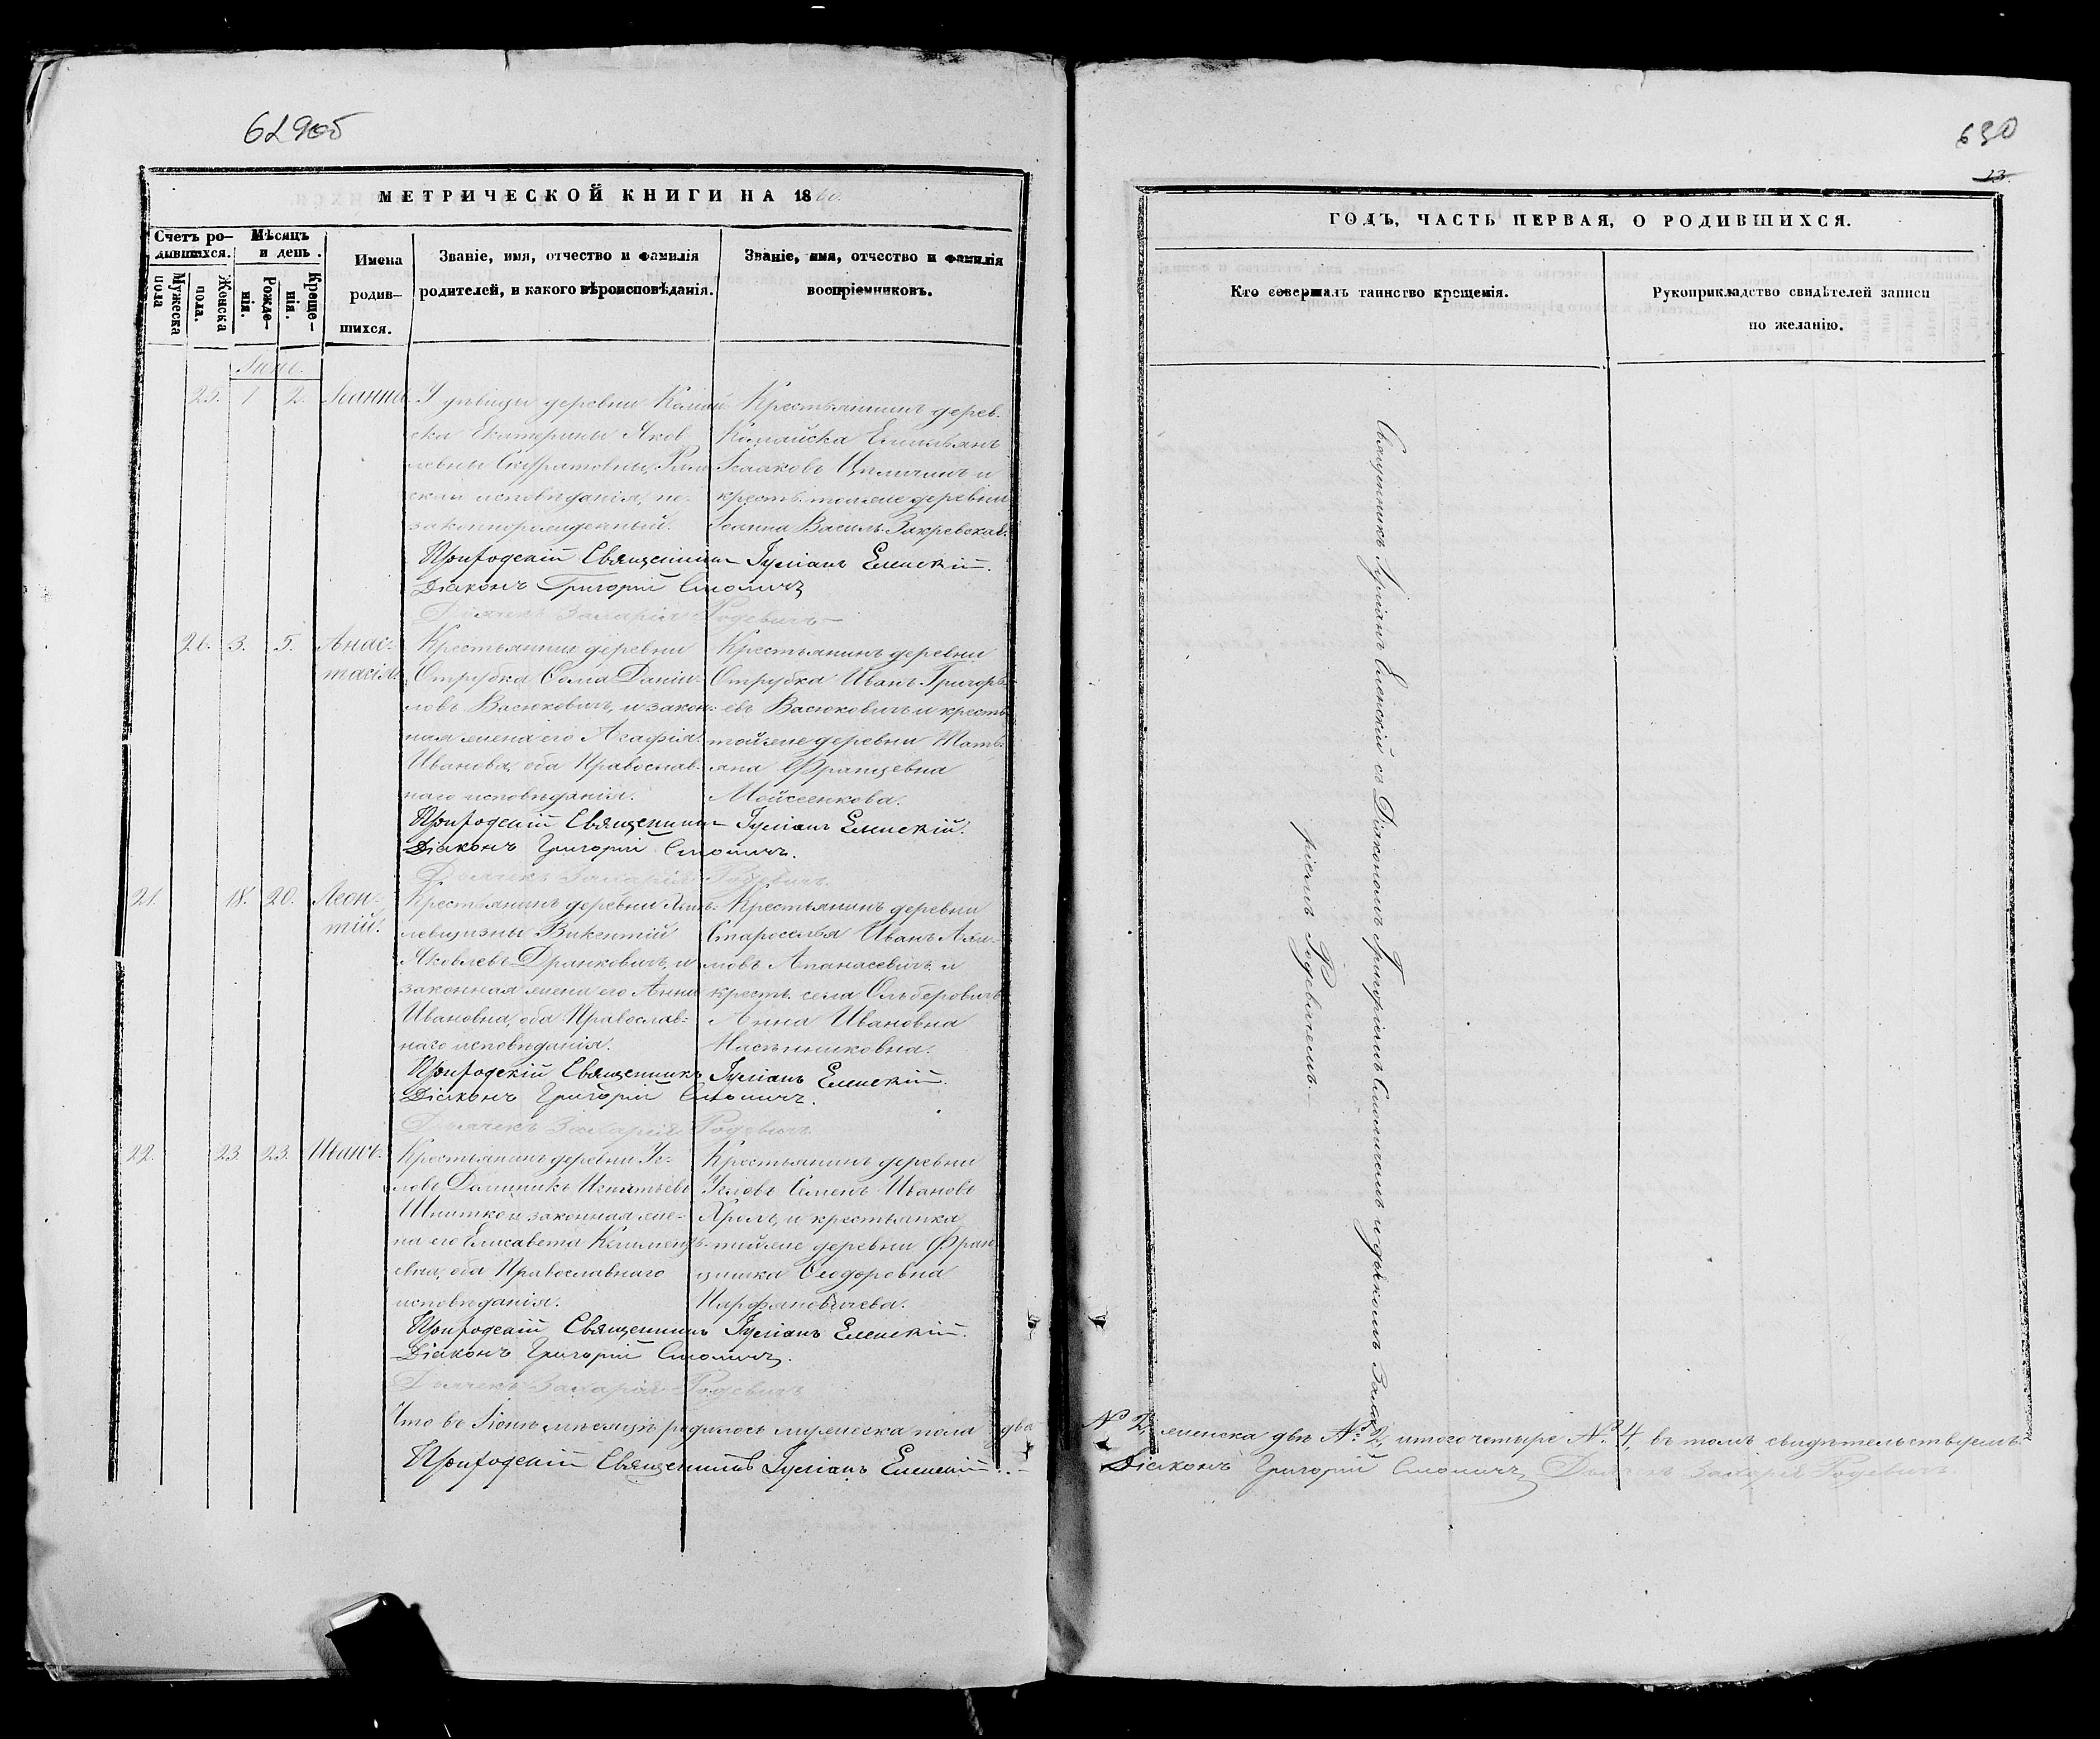 629об
МЕТРИЧЕСКОЙ КНИГИ НА 1860.
Счетъ ро-
дившихся.
Мѣсяцъ
и день.
Мужеска
пола
Женска
пола.
Рожде-
нія.
Креще-
нія.
Имена
родив-
шихся.
Званіе, имя, отчество и фамилія
родителей, и какого вѣроисповѣданія.
Званіе, имя, отчество и фамилія
воспріемниковъ.
Іюнь.
25. 1 2. Іоанна
У дѣвицы деревни Камай-
ска Екатерины Яков-
левны Рим-
скаго исповѣданія, не-
законнорожденный.
Крестьянинъ дерев.
Камайска Емильянъ
Исааковъ и
крест. тойже деревни
Іоанна Василь. Закревская.
Приходскій Священникъ Іуліанъ Еленскій.
Діаконъ Григорій Смоличъ
Дьячекъ Захарія Родевичъ
26. 3. 5. Анас-
тасія.
Крестьянинъ деревни
Отрубка Фома Даніи-
ловъ Васюковичъ, и закон-
ная жена его Агафія
Иванова, оба Православ-
наго исповѣданія.
Крестьянинъ деревни
Отрубка Иванъ Григорь-
евъ Васюковичъ и крест.
тойже деревни Тать-
яна Францевна
Мойсеенкова.
Приходскій Священникъ Іуліанъ Еленскій.
Діаконъ Григорій Смоличъ.
Дьячекъ Захарія Родевичъ.
21. 18. 20. Леон-
тій.
Крестьянинъ деревни
Викентій
Яковлевъ Дранковичъ, и
законная жена его Анна
Ивановна, оба Православ-
наго исповѣданія.
Крестьянинъ деревни
Староселья Иванъ Аки-
мовъ Апанасевичъ и
крест. села Ольберовичъ
Анна Ивановна
Приходскій Священникъ Іуліанъ Еленскій.
Діаконъ Григорій Смоличъ.
Дьячекъ Захарія Родевичъ.
22. 23. 23. Иванъ.
Крестьянинъ деревни Ус-
ловъ Доминикъ Игнатьевъ
законная же-
на его Елисавета Климен-
евна, оба Православнаго
исповѣданія.
Крестьянинъ деревни
Условъ Семенъ Ивановъ
и крестьянка
тойже деревни Фран-
цишка Ѳеодоровна
Парфяновичева.
Приходскій Священникъ Іуліанъ Еленскій.
Діаконъ Григорій Смоличъ.
Дьячекъ Захарія Родевичъ
Что въ Іюнѣ мѣсяцѣ родилось мужеска пола два
Приходскій Священникъ Іуліанъ Еленскій.
630
23.
ГОДЪ, ЧАСТЬ ПЕРВАЯ, О РОДИВШИХСЯ.
Кто совершалъ таинство крещенія.
Рукоприкладство свидѣтелей записи
по желанію.
Священникъ Іуліанъ Еленскій съ Діакономъ Григоріемъ Смоличомъ и дьякомъ Заха-
ріемъ Родевичемъ.
№ 2, женска двѣ № 2, итого четыре № 4, въ томъ свидѣтельствуемъ.
Діаконъ Григорій Смоличъ Дьячекъ Захарія Родевичъ